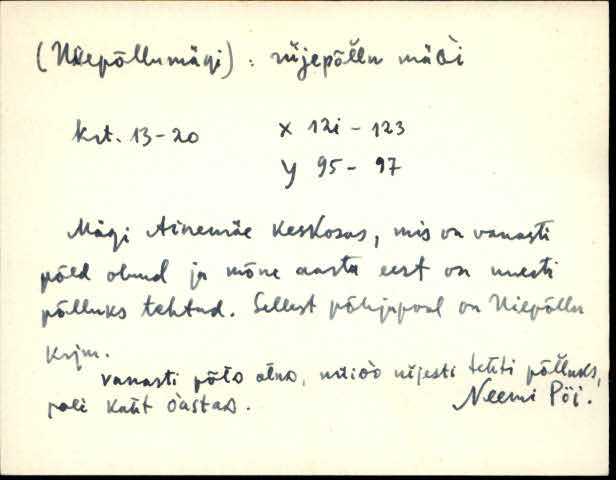 (Niiepõllumägi) : nijepõllu mäGi
krt. 13-20 X 121 - 123
Y 95 - 97
Mägi Ainemäe keskosas, mis on vanasti
põld olnud ja mõne aasta eest on uuesti
põlluks tehtud. Sellest põhjapool on Niiepõllu
kajm.
vanasti põlo olno, nijesti tehti põlluks,
kaht
Neemi Pöi.